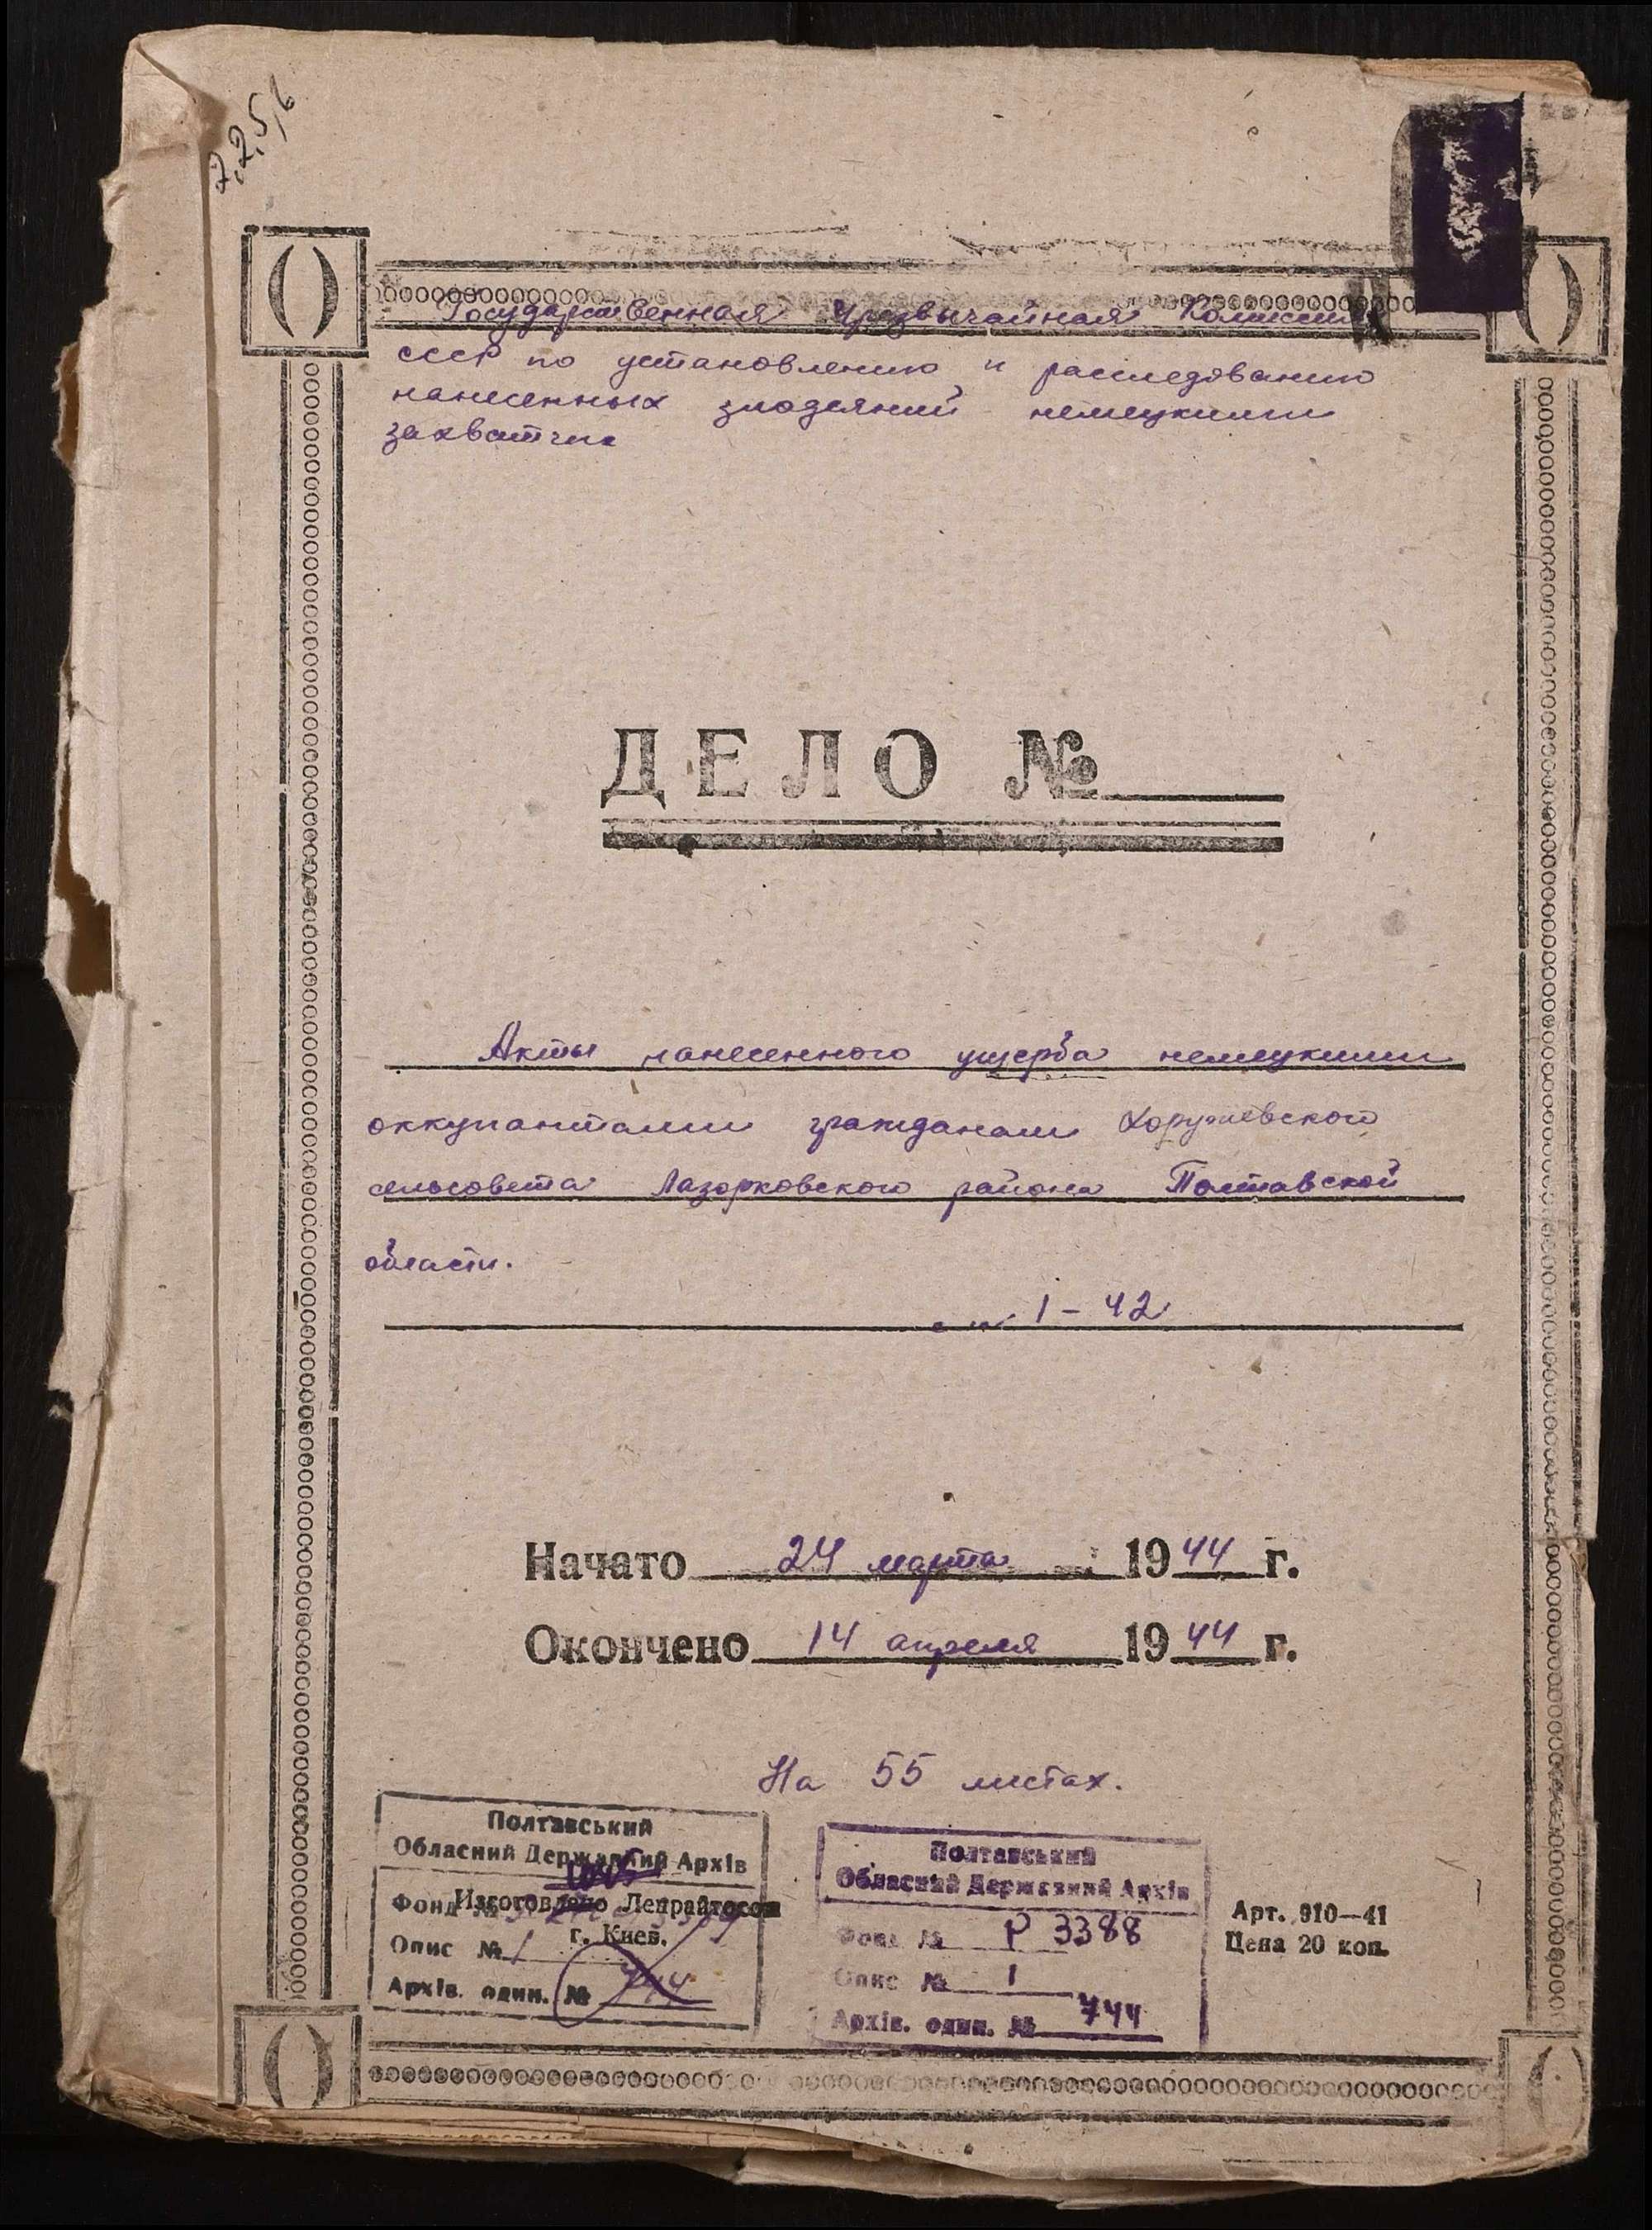 7,2,5,6
Государственная Чрезвычайная Комиссия
СССР по установлению и расследованию
нанесенных злодеяний немецкими
захватчик
ДЕЛО №
Акты нанесенного ущерба немецкими
оккупантами гражданам Хоружевского
сельсовета Лазорковского района Полтавской
области.
1-42
Начато 24 марта 1944 г.
Окончено 14 апреля 1944 г.
На 55 листах.
Полтавський
Обласний Державний Архів
Фонд №
Изготовлено Ленрайтосом
г. Киев.
Опис № 1
Архів. один. № 744
Полтавський
Обласний Державний Архів
Фонд № Р 3388
Опис № 1
Архів. один. № 744
Арт. 910—41
Цена 20 коп.